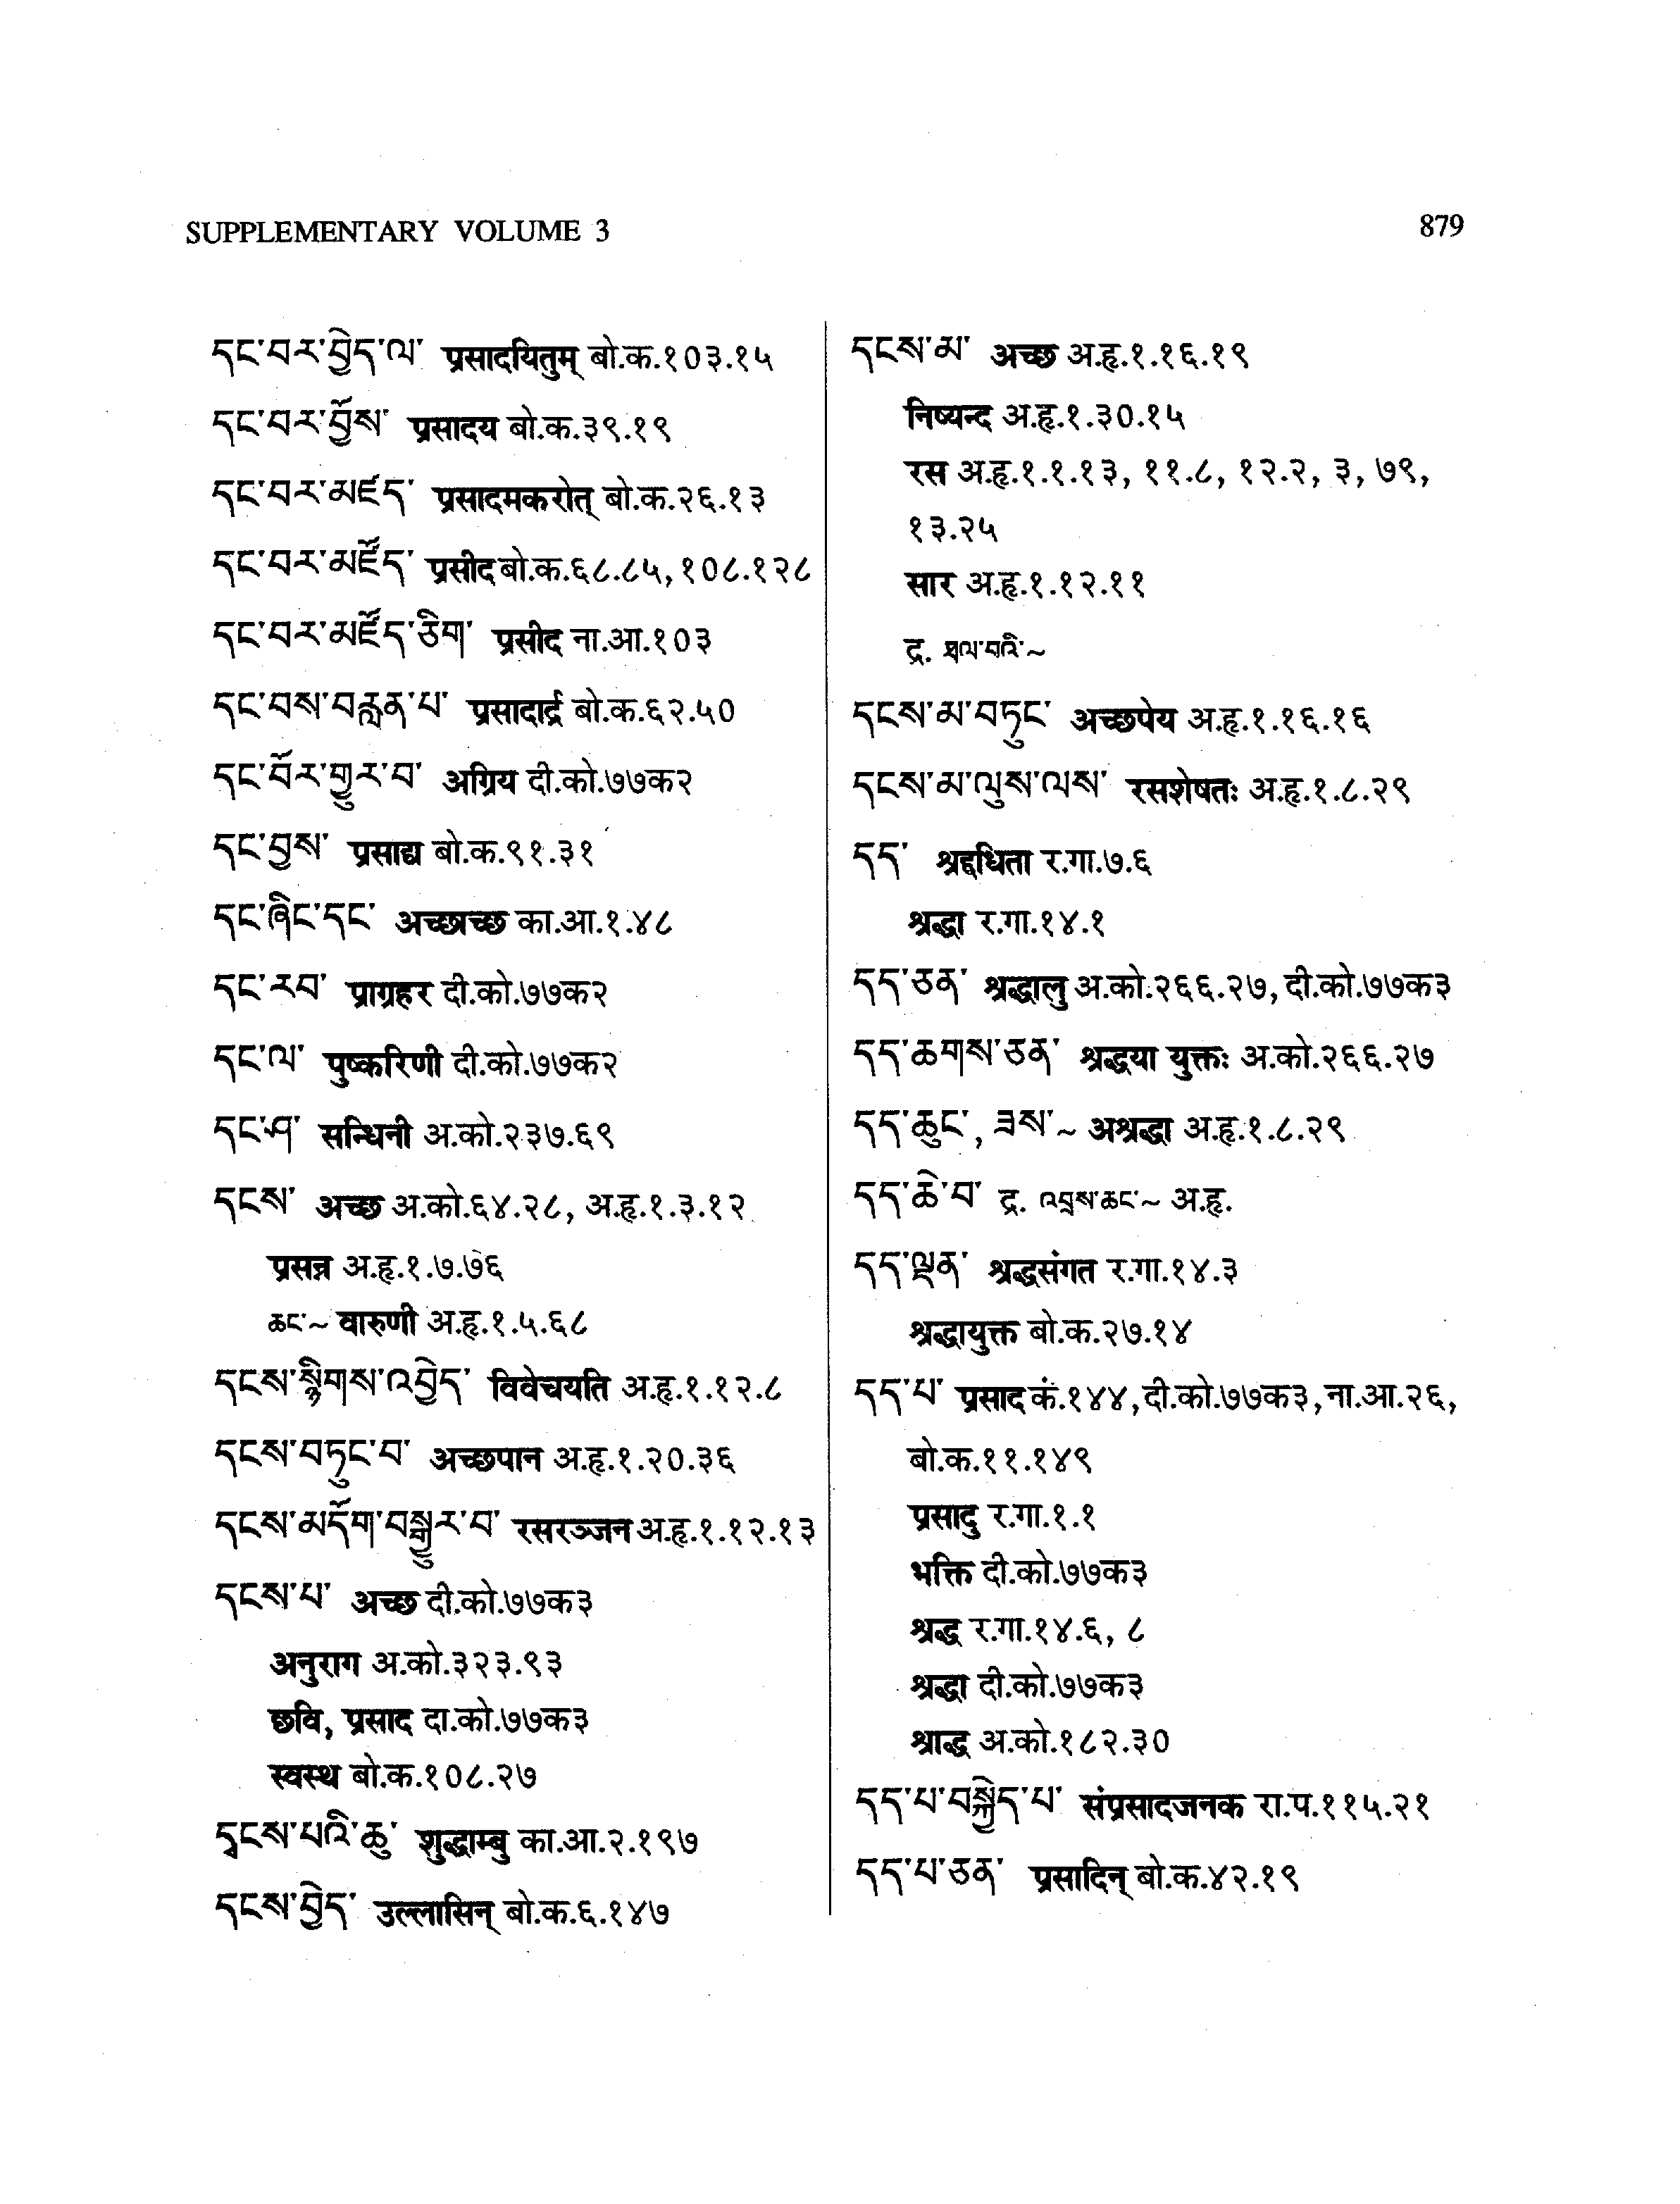 SUPPLEMENTARY VOLUME 3
879
དང་བར་བྱེད་ལ་ प्रसादयितुम् बो.क.१०३.१५
དང་བར་བྱོས་ प्रसादय बो.क.३९.१९
དང་བར་མཛད་ प्रसादमकरोत् बो.क.२६.१३
དང་བར་མཛོད་ प्रसीद बो.क.६८.८५, १०८.१२८
དང་བར་མཛོད་ཅིག་ प्रसीद ना.आ.१०३
དང་བས་བརླན་པ་ प्रसादार्द्र बो.क.६२.५०
དང་བོར་གྱུར་བ་ अग्रिय दी.को.७७क२
དང་བྱས་ प्रसाद्य बो.क.९१.३१
དང་ཞིང་དང་ अच्छाच्छ का.आ.१.४८
དང་རབ་ प्राग्रहर दी.को.७७क२
དང་ལ་ पुष्करिणी दी.को.७७क२
དང་ཤ་ सन्धिनी अ.को.२३७.६९
དངས་ अच्छ अ.को.६४.२८, अ.हृ.१.३.१२
प्रसन्न अ.हृ.१.७.७६
ཆང་~ वारुणी अ.हृ.१.५.६८
དངས་སྙིགས་འབྱེད་ विवेचयति अ.हृ.१.१२.८
དངས་བཏུང་བ་ अच्छपान अ.हृ.१.२०.३६
དངས་མདོག་བསྒྱུར་བ་ रसरञ्जन अ.हृ.१.१२.१३
དངས་པ་ अच्छ दी.को.७७क३
अनुराग अ.को.३२३.९३
छवि, प्रसाद दा.को.७७क३
स्वस्थ बो.क.१०८.२७
དྭངས་པའི་ཆུ་ शुद्धाम्बु का.आ.२.१९७
དངས་བྱེད་ उल्लासिन् बो.क.६.१४७
དངས་མ་ अच्छ अ.हृ.१.१६.१९
निष्यन्द अ.हृ.१.३०.१५
रस अ.हृ.१.१.१३, ११.८, १२.२, ३, ७९,
१३.२५
सार अ.हृ.१.१२.११
द्र. ཐལ་བའི་~
དངས་མ་བཏུང་ अच्छपेय अ.हृ.१.१६.१६
དངས་མ་ལུས་ལས་ रसशेषतः अ.हृ.१.८.२९
དད་ श्रद्दधिता र.गा.७.६
श्रद्धा र.गा.१४.१
དད་ཅན་ श्रद्धालु अ.को.२६६.२७, दी.को.७७क३
དད་ཆགས་ཅན་ श्रद्धया युक्तः अ.को.२६६.२७
དད་ཆུང་, ཟས་~ अश्रद्धा अ.हृ.१.८.२९
དད་ཆེ་བ་ द्र. འབྲས་ཆང་~ अ.हृ.
དད་ལྡན་ श्रद्धसंगत र.गा.१४.३
श्रद्धायुक्त बो.क.२७.१४
དད་པ་ प्रसाद कं.१४४, दी.को.७७क३, ना.आ.२६,
बो.क.११.१४९
प्रसादु र.गा.१.१
भक्ति दी.को.७७क३
श्रद्ध र.गा.१४.६, ८
श्रद्धा दी.को.७७क३
श्राद्ध अ.को.१८२.३०
དད་པ་བསྐྱེད་པ་ संप्रसादजनक रा.प.११५.२१
དད་པ་ཅན་ प्रसादिन् बो.क.४२.१९